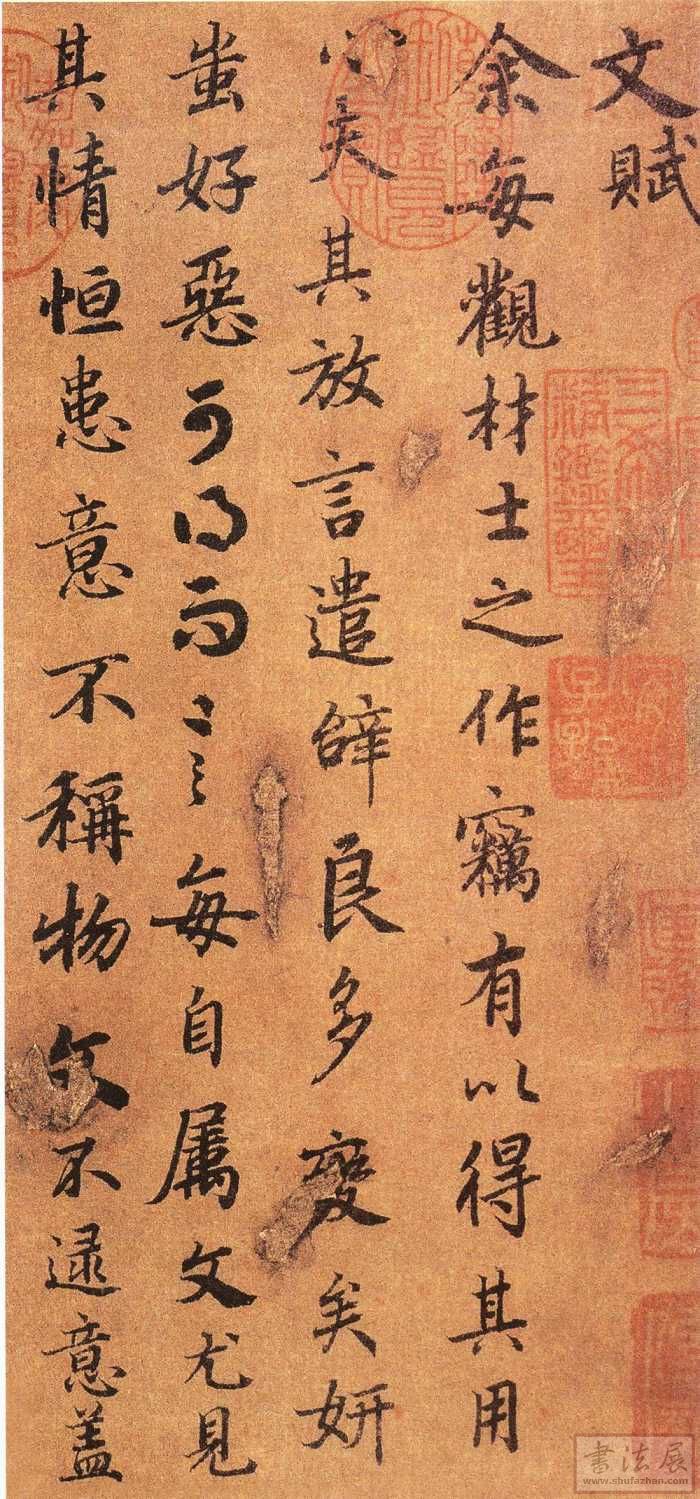 文賦
余每觀材士之作竊有以得其用
心夫其放言遣辭良多變矣妍
蚩好惡可得而言每自属文尤見
其情恒患意不稱物文不逮意盖
三希堂
精鑑璽
宜子孫
書法展
www.shufazhan.com